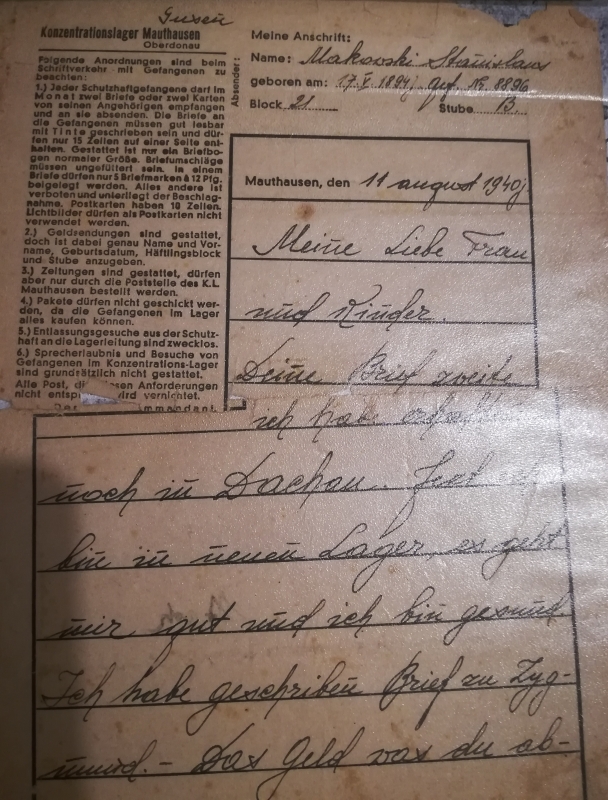 Gusen
Konzentrationslager Mauthausen
Oberdonau
Folgende Anordnungen sind beim
Schriftverkehr mit Gefangenen zu
beachten:
1.) Jeder Schutzhaftgefangene darf im
Monat zwei Briefe oder zwei Karten
von seinen Angehörigen empfangen
und an sie absenden. Die Briefe an
die Gefangenen müssen gut lesbar
mit Tinte geschrieben sein und dür-
fen nur 15 Zeilen auf einer Seite ent-
halten. Gestattet ist nur ein Briefbo-
gen normaler Größe. Briefumschläge
müssen ungefüttert sein. In einem
Briefe dürfen nur 5 Briefmarken à 12 Pfg.
beigelegt werden. Alles andere ist
verboten und unterliegt der Beschlag-
nahme. Postkarten haben 10 Zeilen.
Lichtbilder dürfen als Postkarten nicht
verwendet werden.
2.) Geldsendungen sind gestattet,
doch ist dabei genau Name und Vor-
name, Geburtsdatum, Häftlingsblock
und Stube anzugeben.
3.) Zeitungen sind gestattet, dürfen
aber nur durch die Poststelle des K.L.
Mauthausen bestellt werden.
4.) Pakete dürfen nicht geschickt wer-
den, da die Gefangenen im Lager
alles kaufen können.
5.) Entlassungsgesuche aus der Schutz-
haft an die Lagerleitung sind zwecklos.
6.) Sprecherlaubnis und Besuche von
Gefangenen im Konzentrations-Lager
sind grundsätzlich nicht gestattet.
Alle Post, die Anforderungen
nicht wird vernichtet.
Absender:
Meine Anschrift:
Name: Makowski Stanislaus
geboren am: 17.V.1894j. gef. № 8896
Block 21 Stube B.
Mauthausen, den 11 august 1940j
Meine Liebe Frau
und Kinder.
Deine Brief zweite
ich habe
noch in Dachau.
bin in neuen Lager, es geht
mir gut und ich bin gesund.
Ich habe geschriben Brief zu Zyg-
mund.- Das Geld was du ab-